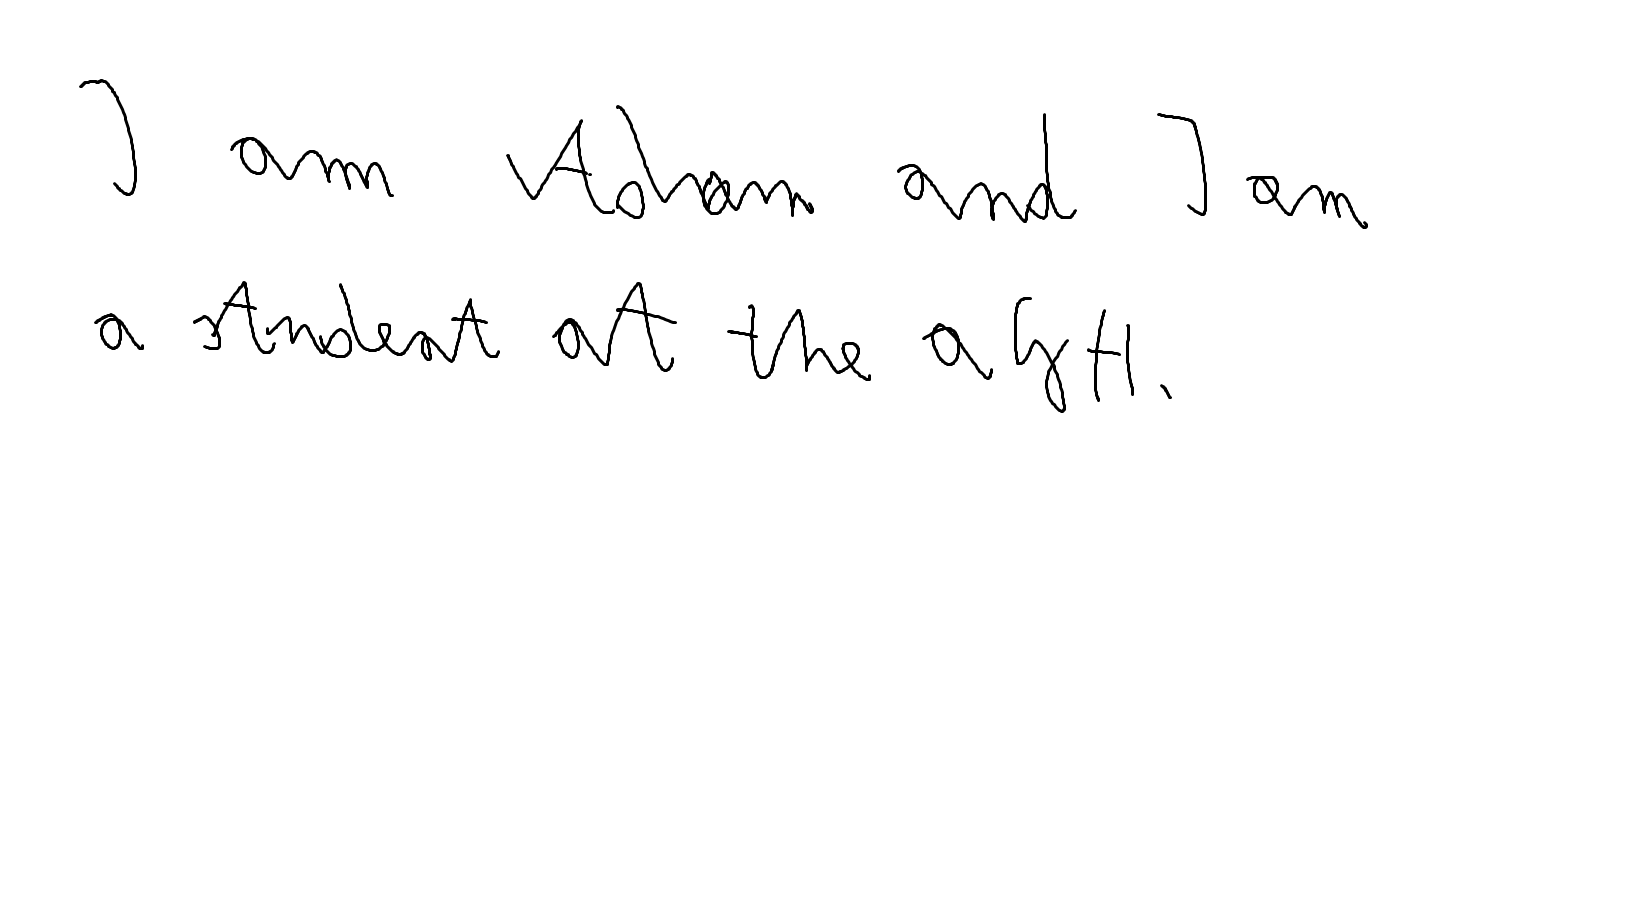 I am Adham and I am
a student at the